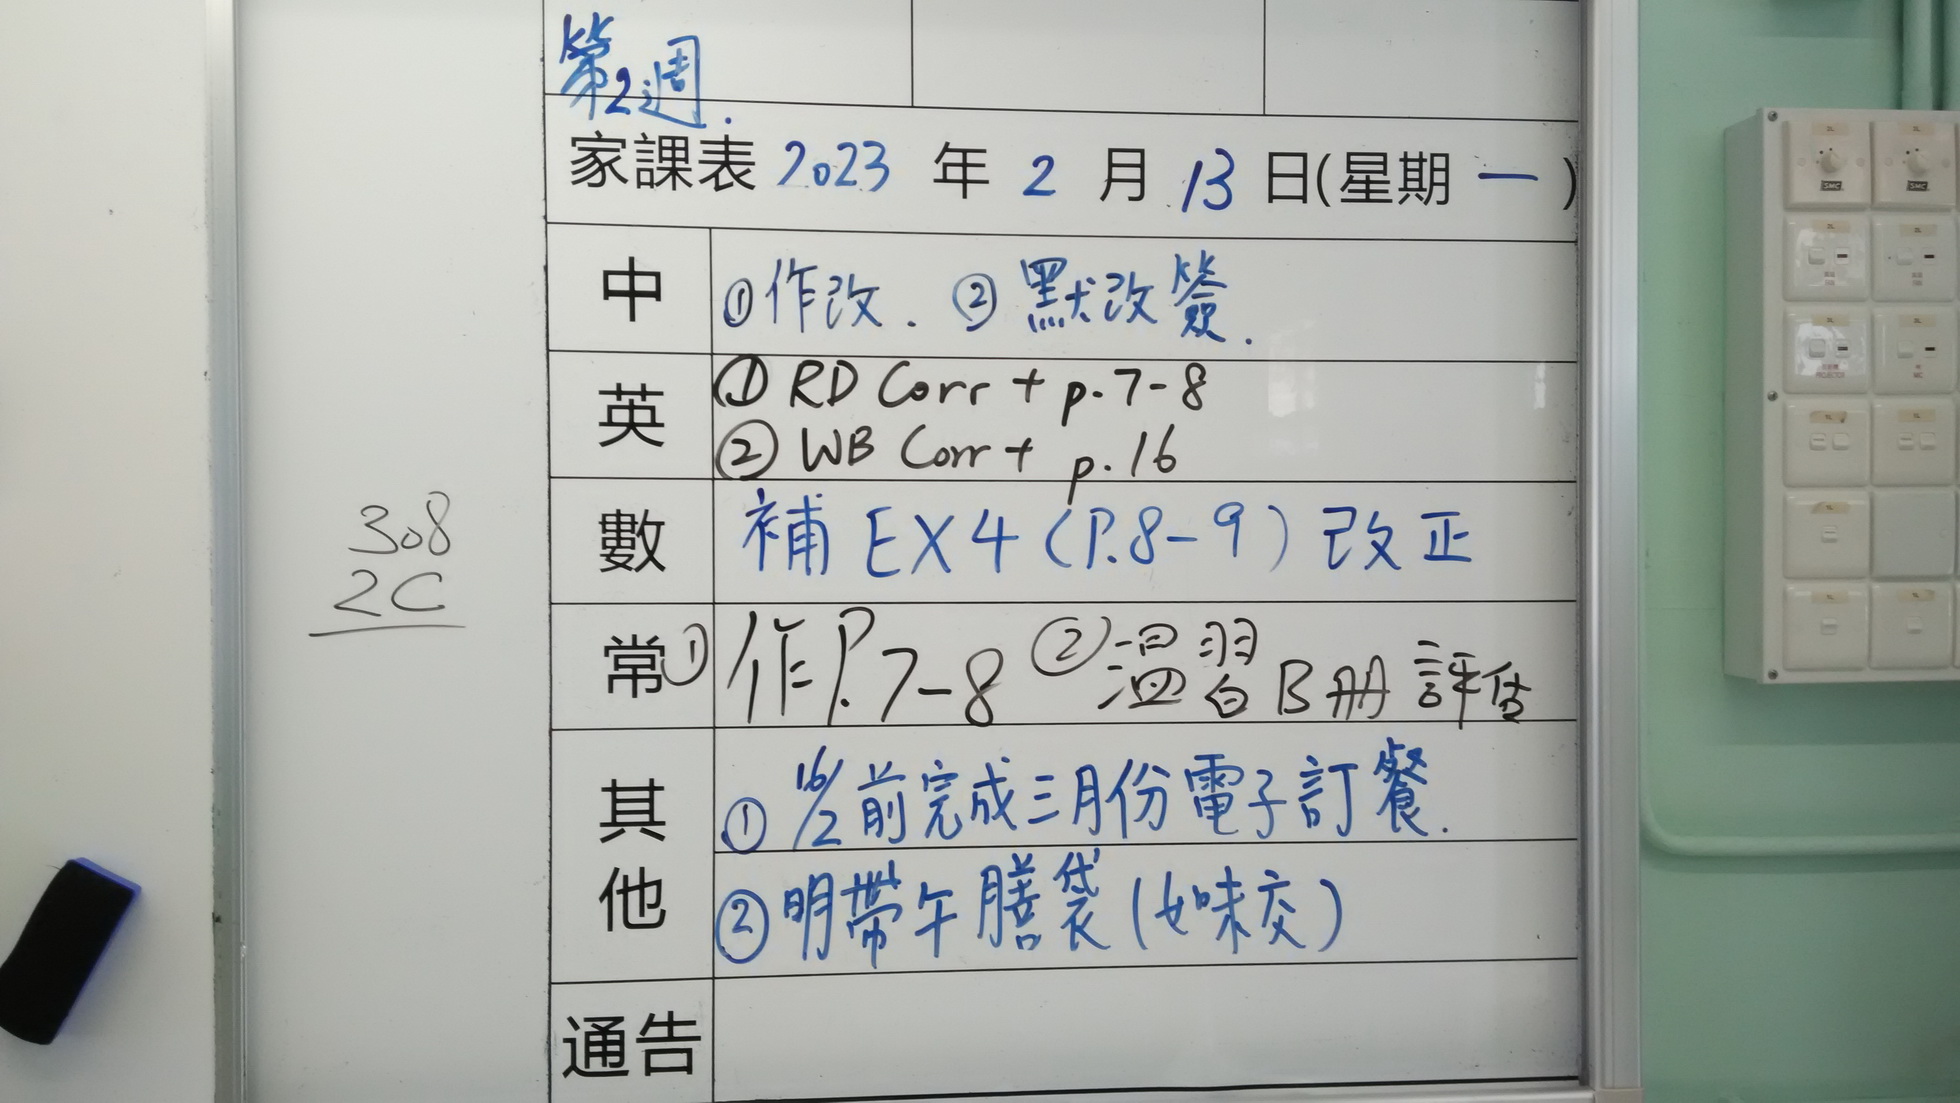 第2週.
家課表 2023 年 2 月 13 日(星期 一 )
中 ①作改. ②默改簽.
英 ① RD Corr + p.7-8
② WB Corr + p.16
數 補 EX4 (P.8-9) 改正
308
2C
常 ① 作P.7-8 ②溫習B冊評估
其他 ① 16/2前完成三月份電子訂餐.
②明帶午膳袋(女味交)
通告
SMC SMC